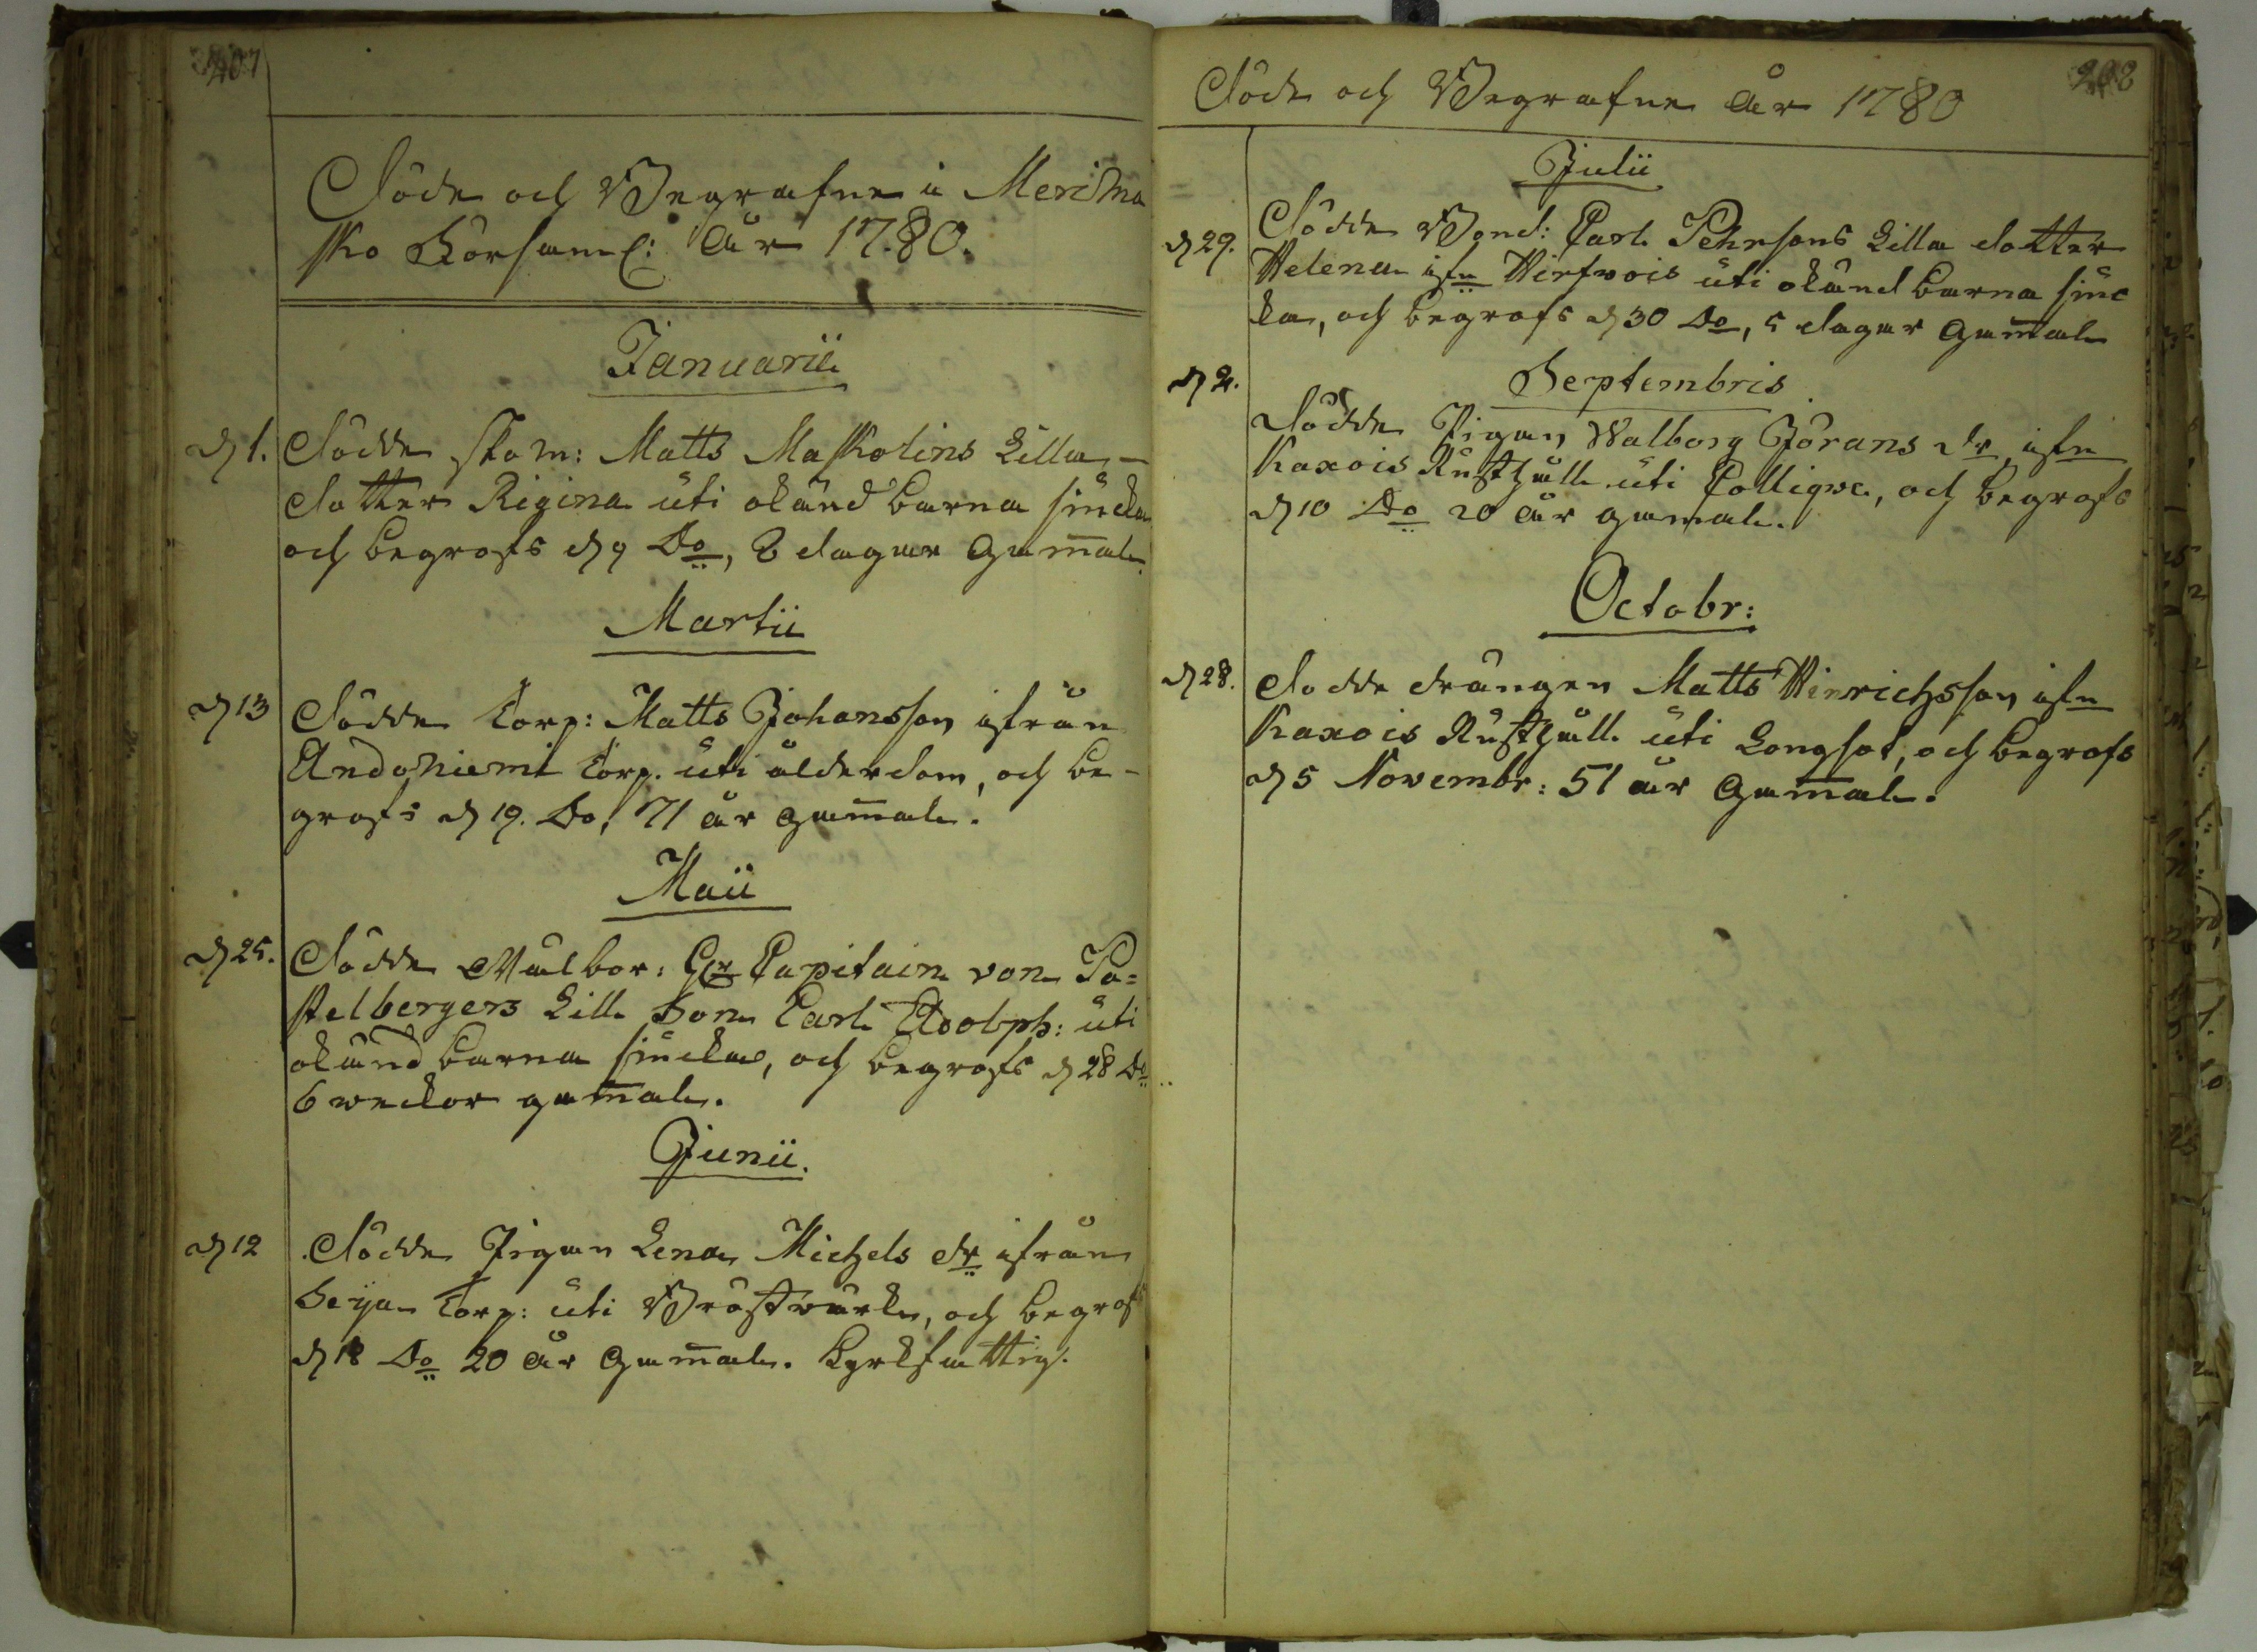 207
Döde och Begrafne i Merima
sko Församl: år 1780.
Januarii
d 1. Dödde skom: Matts Maskolins Lilla
dotter Rigina uti okänd barna siucka
och begrofs d 9 Do, 8 dagar gam̅al.
Martii
d 13 Dödde Torp: Matts Johansson ifrån
Andoniemi Torp. uti ålderdom, och be-
grofs d 19. Do, 71 år gam̅al.
Maii
d 25. Dödde Wälbor: Hr Capitain von Pa-
stelbergers Lill Son Carl Adolph: uti
okänd barna siucka, och begrofs d 28 Do
6 weckor gam̅al.
Junii.
d 12 Dödde Pigan Lena Michels dr ifrån
Seija Torp: uti Bröstwärk, och begrofs
d 18 Do 20 år gam̅al. Kyrkfattig.
208
Döde och Begrafne år 1780
Julii
d 29. Dödde Bond: Carl Pehrsons Lilla dotter
Helena ifn Hirfwois uti okänd barna siuc
ka, och begrofs d 30 Do, 5 dagar gam̅al
Septembris
d 2. Dödde Pigan Walborg Jörans dr ifn
Kaxois Rusthåll uti Colliqve, och begrofs
d 10 Do 20 år gamal.
Octobr:
d 28. Dodde drängen Matts Hinrichsson ifn
Kaxois Rusthåll uti Longsot, och begrofs
d 5 Novembr: 51 år gam̅al.